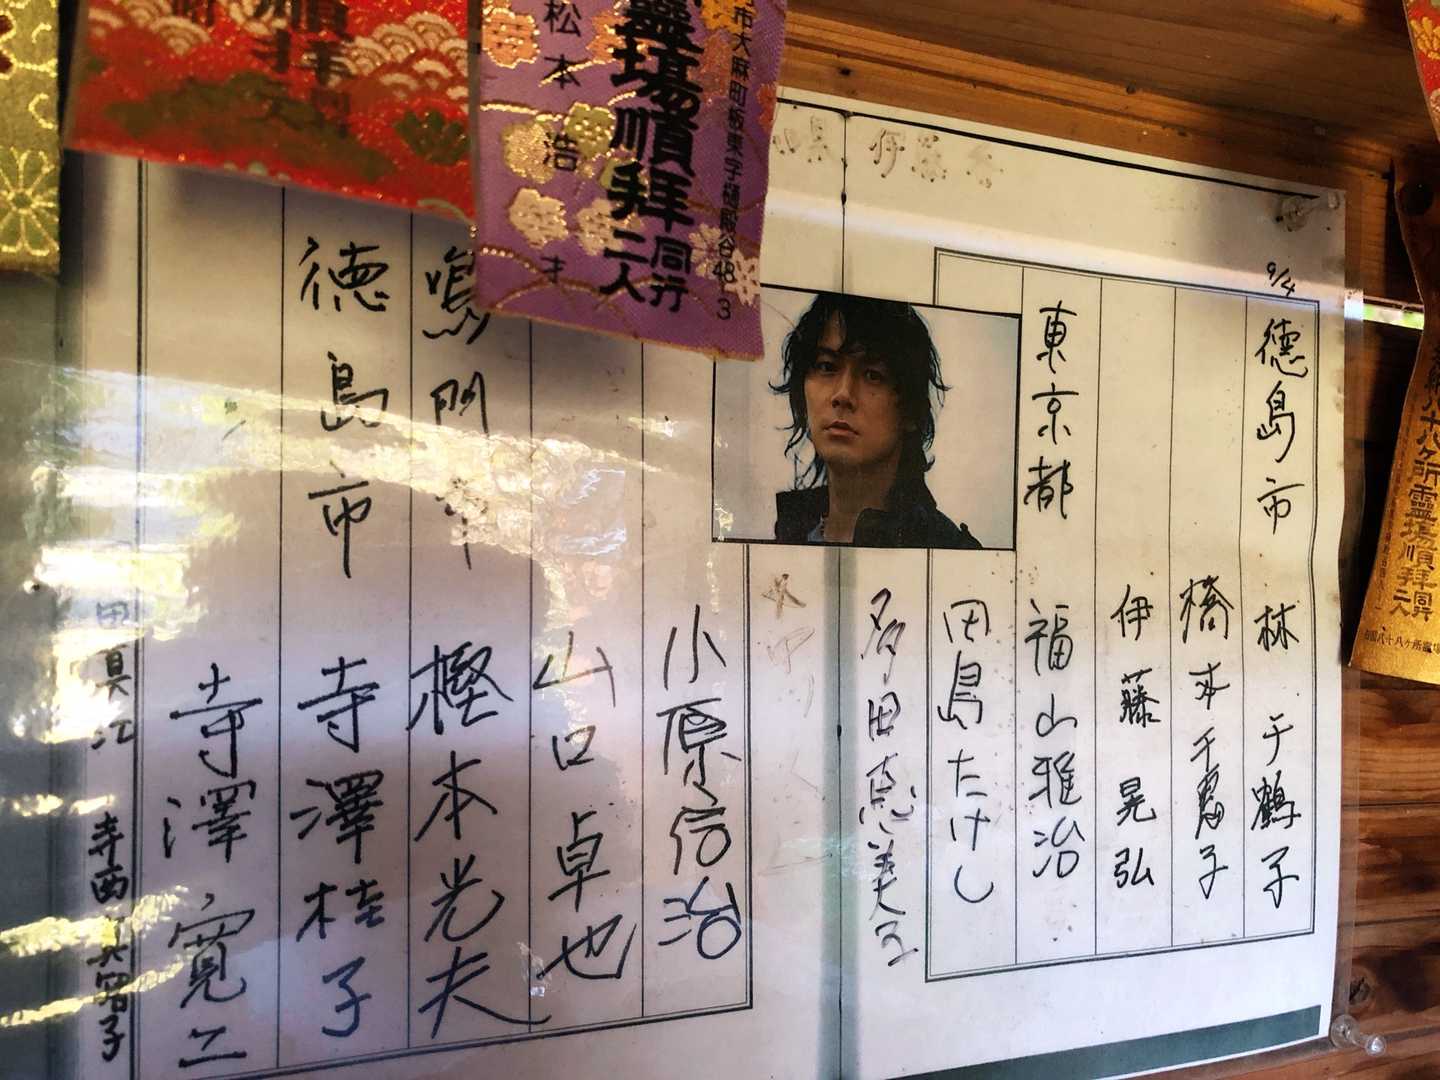 9/4
徳島市 林 千鶴子
橋本千恵子
伊藤晃弘
東京都 福山雅治
田島たけし
多田恵美子
小原信治
山口卓也
鳴門市 樫本光夫
徳島市 寺澤桂子
寺澤寛二
寺西
伊藤
松本浩才
霊場順拝同行二人
市大麻町
東字樋殿谷48-3
順拝
八十八ヶ所霊場順拝同行二人
四国八十八ヶ所霊場